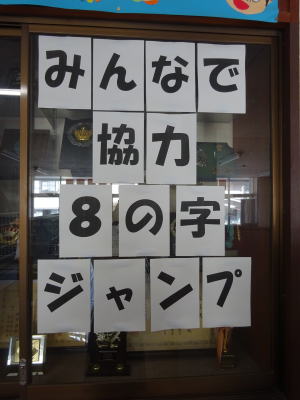 みんなで
協力
8の字
ジャンプ